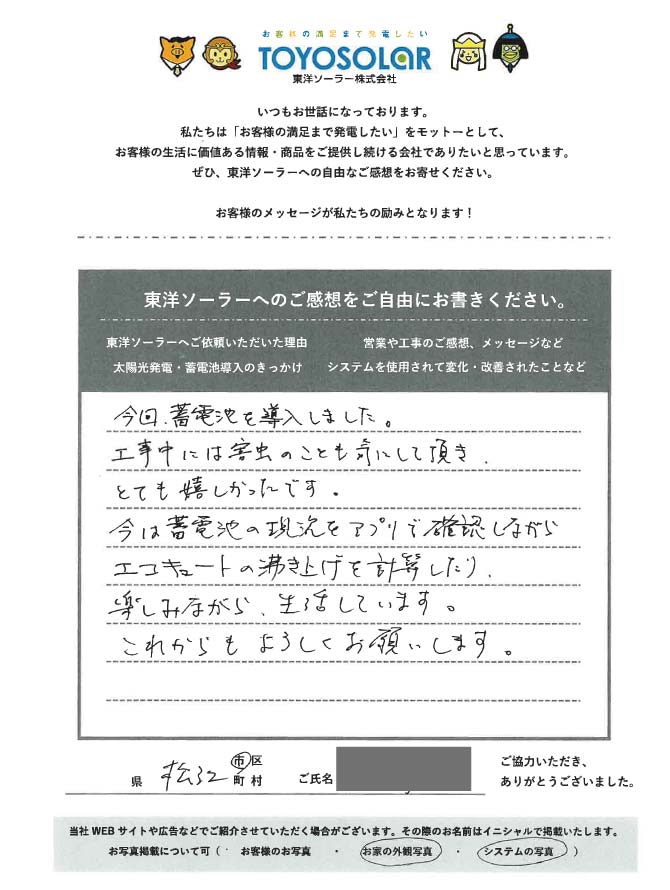 お客様の満足まで発電したい
TOYOSOLAR
東洋ソーラー株式会社
いつもお世話になっております。
私たちは「お客様の満足まで発電したい」をモットーとして、
お客様の生活に価値ある情報・商品をご提供し続ける会社でありたいと思っています。
ぜひ、東洋ソーラーへの自由なご感想をお寄せください。
お客様のメッセージが私たちの励みとなります！
東洋ソーラーへのご感想をご自由にお書きください。
東洋ソーラーへご依頼いただいた理由 営業や工事のご感想、メッセージなど
太陽光発電・蓄電池導入のきっかけ システムを使用されて変化・改善されたことなど
今回、蓄電池を導入しました。
工事中には害虫のことも気にして頂き、
とても嬉しかったです。
今は蓄電池の現況をアプリで確認しながら
エコキュートの沸き上げを計算したり、
楽しみながら、生活しています。
これからもよろしくお願いします。
県 松江 市区町村 ご氏名
ご協力いただき、
ありがとうございました。
当社WEBサイトや広告などでご紹介させていただく場合がございます。その際のお名前はイニシャルで掲載いたします。
お写真掲載について可（・ お客様のお写真 ・ お家の外観写真 ・ システムの写真 ）